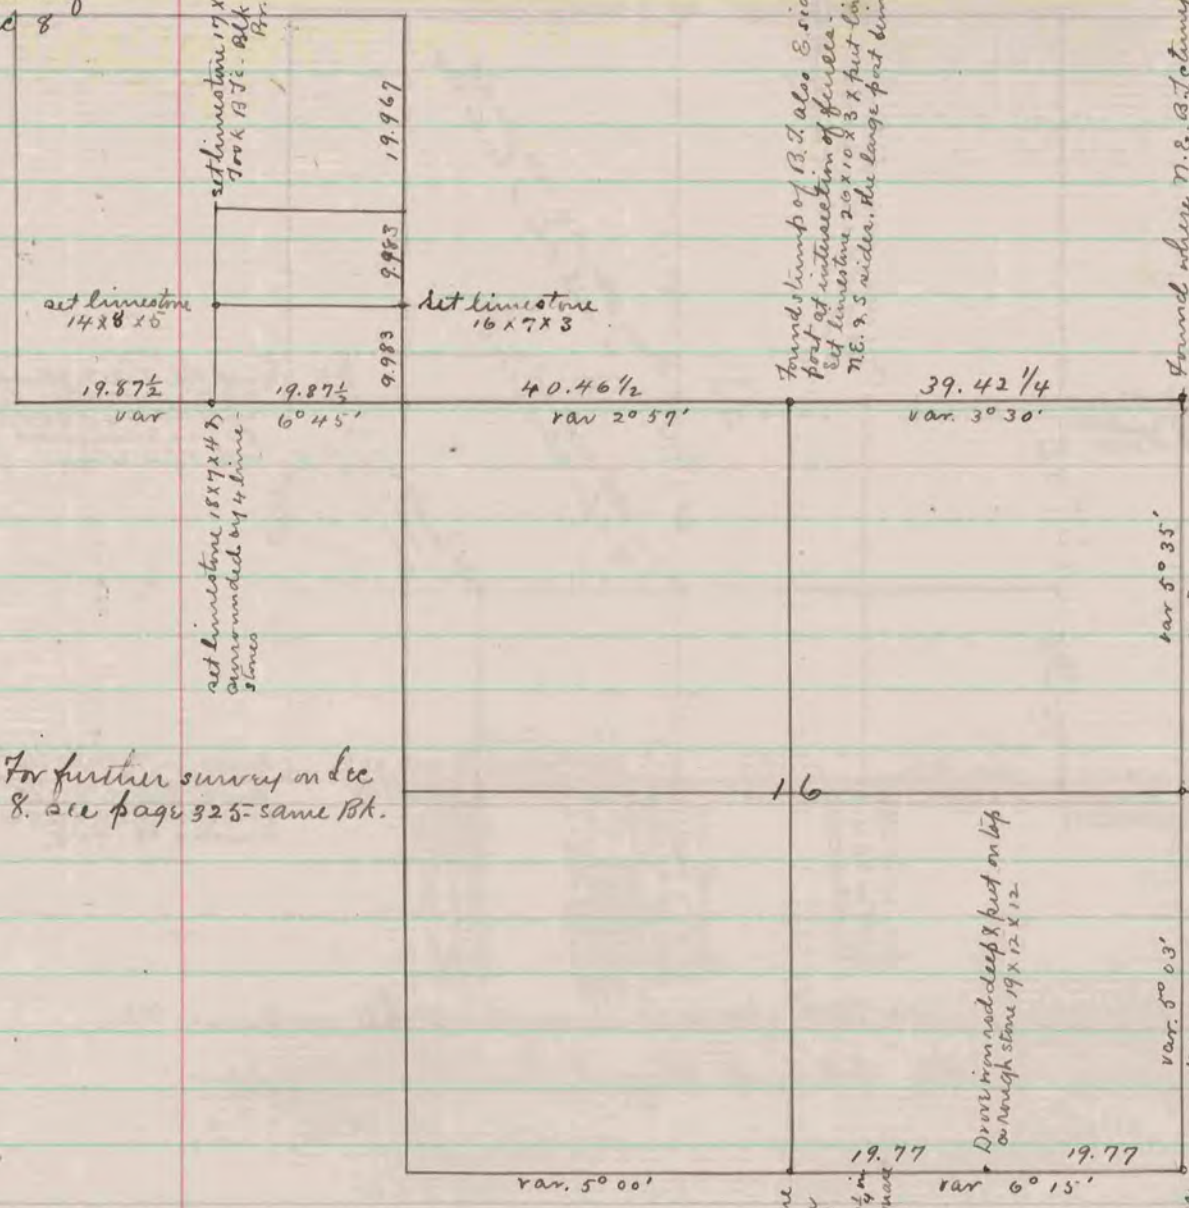 c 8
set limestone 17 x
Took B Ts - Blk
19.967
9.983
9.983
set limestone
14 x 8 x 5
set limestone
16 x 7 x 3
Found stump of B.T. also E. sid
post at intersection of fences.
Set limestone 26 x 10 x 3 x put
N.E. & S sides. the large post
Found where N.E. B.T.
19.87½
var
19.87½
6° 45'
40.46 1/2
var 2° 57'
39.42 1/4
var. 3° 30'
set limestone 18 x 7 x 4 &
surrounded by 4 lime-
stones
var 5° 35'
For further survey on Sec
8. see page 325- same Bk.
16
Drove iron rod deep & put on top
a rough stone 19 x 12 x 12
var. 5° 03'
19.77
19.77
var. 5° 00'
var 6° 15'